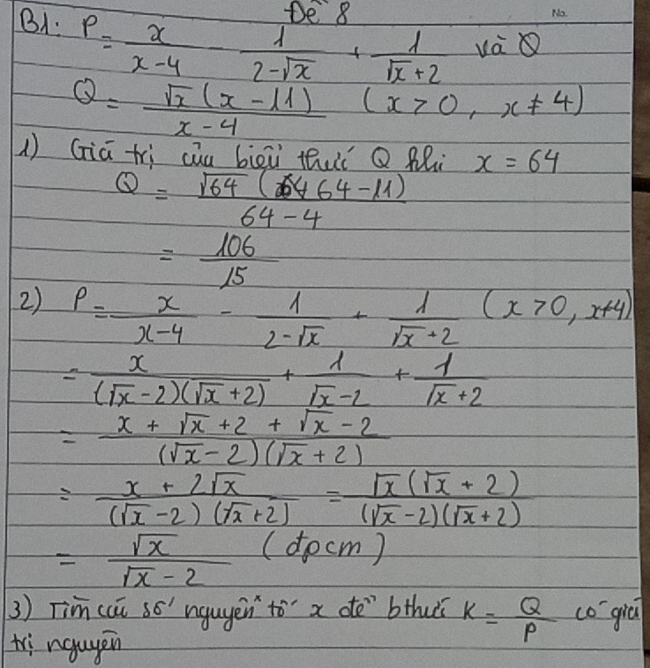 Đề 8
No.
B1: P = x/(x-4) - 1/(2-√x) + 1/(√x+2) và Q
Q = √x(x-11)/(x-4) (x>0, x≠4)
1) Giá trị của biểu thức Q khi x = 64
Q = √64(64-11)/(64-4)
= 106/15
2) P = x/(x-4) - 1/(2-√x) + 1/(√x+2) (x>0, x≠4)
= x/((√x-2)(√x+2)) + 1/(√x-2) + 1/(√x+2)
= (x + √x + 2 + √x - 2)/((√x-2)(√x+2))
= (x + 2√x)/((√x-2)(√x+2)) = √x(√x+2)/((√x-2)(√x+2))
= √x/(√x-2) (đpcm)
3) Tìm các số nguyên tố x để bthức K = Q/P có giá
trị nguyên